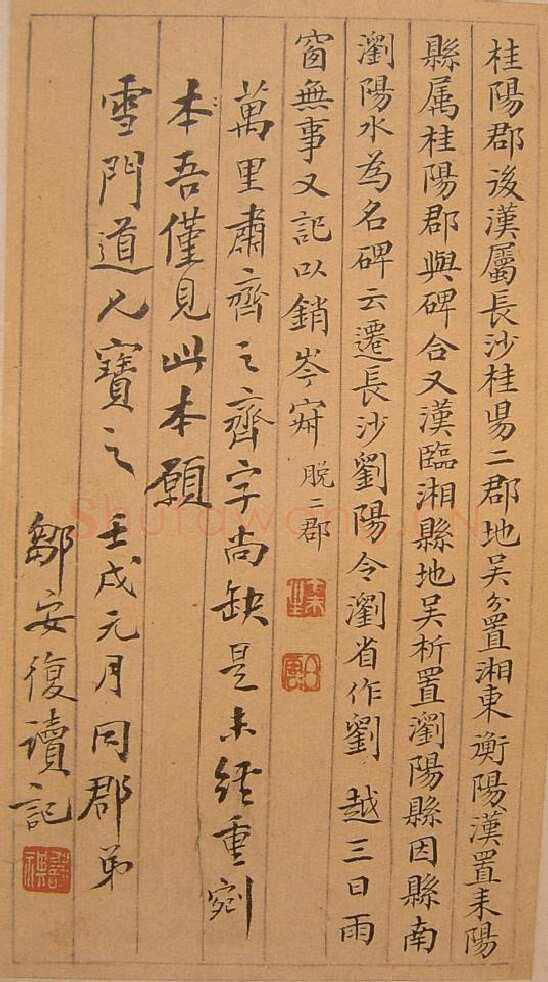 桂陽郡後漢屬長沙桂陽二郡地吳分置湘東衡陽漢置耒陽
縣属桂陽郡與碑合又漢臨湘縣地吳析置瀏陽縣因縣南
瀏陽水為名碑云遷長沙劉陽令瀏省作劉 越三日雨
窗無事又記以銷岑寂 脱二郡
萬里肅齊之齊字尚缺是未經重剜
本吾僅見此本願
雪門道兄寶之 壬戌元月同郡弟
鄒安復讀記